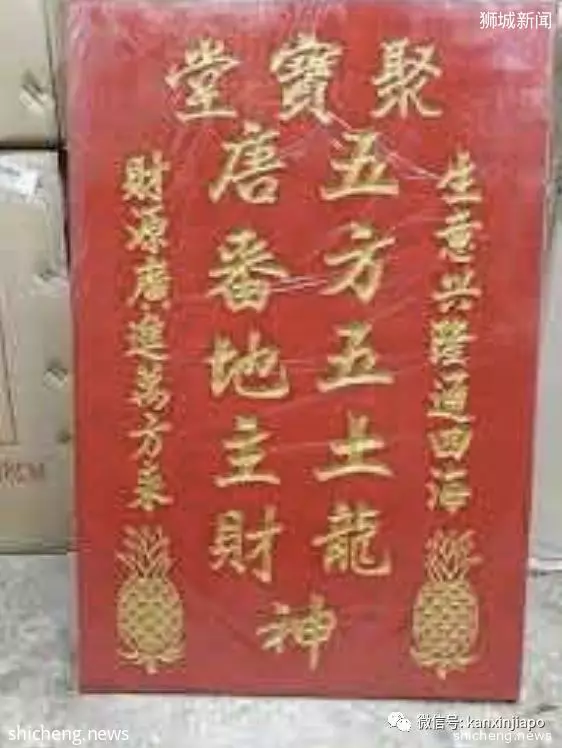 狮城新闻
聚寶堂
生意兴隆通四海
五方五土龍
唐番地主財
神
財源廣進萬方来
微信号: kanxinjiapo
shicheng.news
shicheng.news